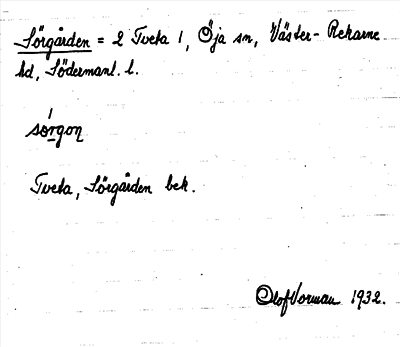 Sörgården = 2 Tveta 1, Öja sn, Väster-Rekarne
hd, Södermanl. l.
sórgon
Tveta, Sörgården bek.
Olof Vorman 1932.